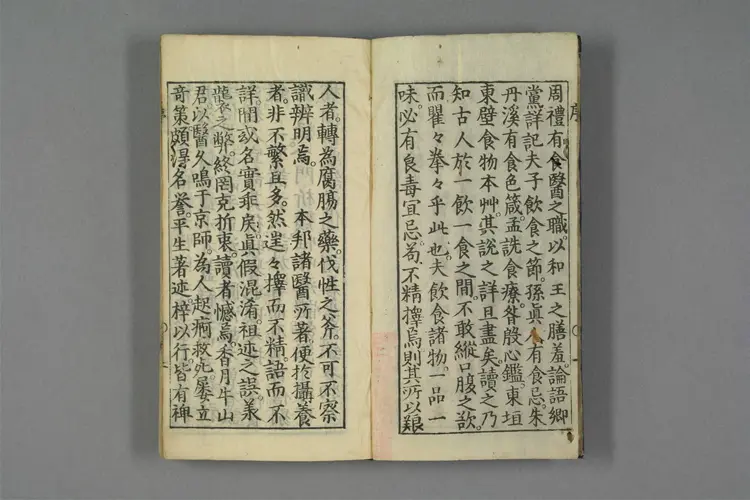 序
周禮有食醫之職。以和王之膳羞。論語鄉
黨詳記夫子飲食之節。孫眞人有食忌。朱
丹溪有食色箴。孟詵食療。昝殷心鑑。東垣
東壁食物本艸。其說之詳且盡矣。讀之乃
知古人於一飲一食之間。不敢縱口腹之欲。
而瞿々拳々乎此也。夫飲食諸物。一品一
味。必有良毒宜忌。苟不精擇焉。則其所以
人者。轉為腐腸之藥。伐性之斧。不可不察
識辨明焉。本邦諸醫所著。便於攝養
者。非不繁且多。然逞々擇而不精。語而不
詳。間或名實乖戾。眞假混淆。祖述之誤。義
襲之弊。終罔克折衷。讀者憾焉。香月牛山
君。以醫久鳴于京師。為人起痾救死。屡立
奇策。頗得名誉。平生著述。梓以行。皆有裨